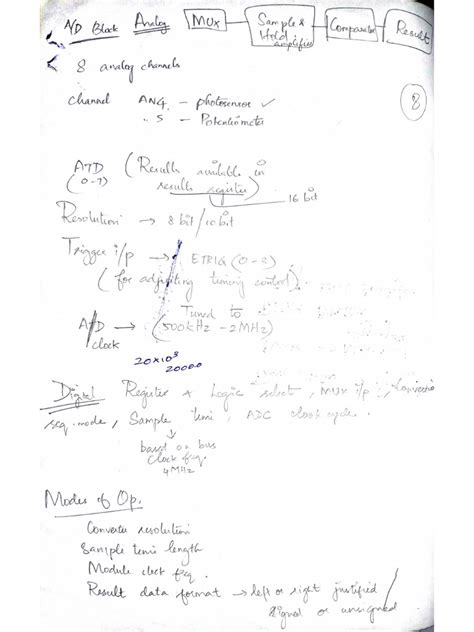 A/D Block Analog MUX Sample & Hold amplifier Comparator Result
8 analog channels
Channel AN4 - photosensor ✓
" 5 - Potentiometer
8
ATD (Results available in
(0-7) results register)
16 bit
Resolution → 8 bit/10 bit
Trigger i/p → ETRIG (0-3)
(for adjusting timing control)
Tuned to
A/D → (500kHz - 2MHz)
clock
20×10³
20000
Digital Register & Logic select, MUX i/p,
seq. mode, Sample time, ADC clock cycle.
based on bus
clock freq.
4MHz
Modes of Op.
Converter resolution
Sample time length
Module clock freq.
Result data format → left or right justified
signed or unsigned